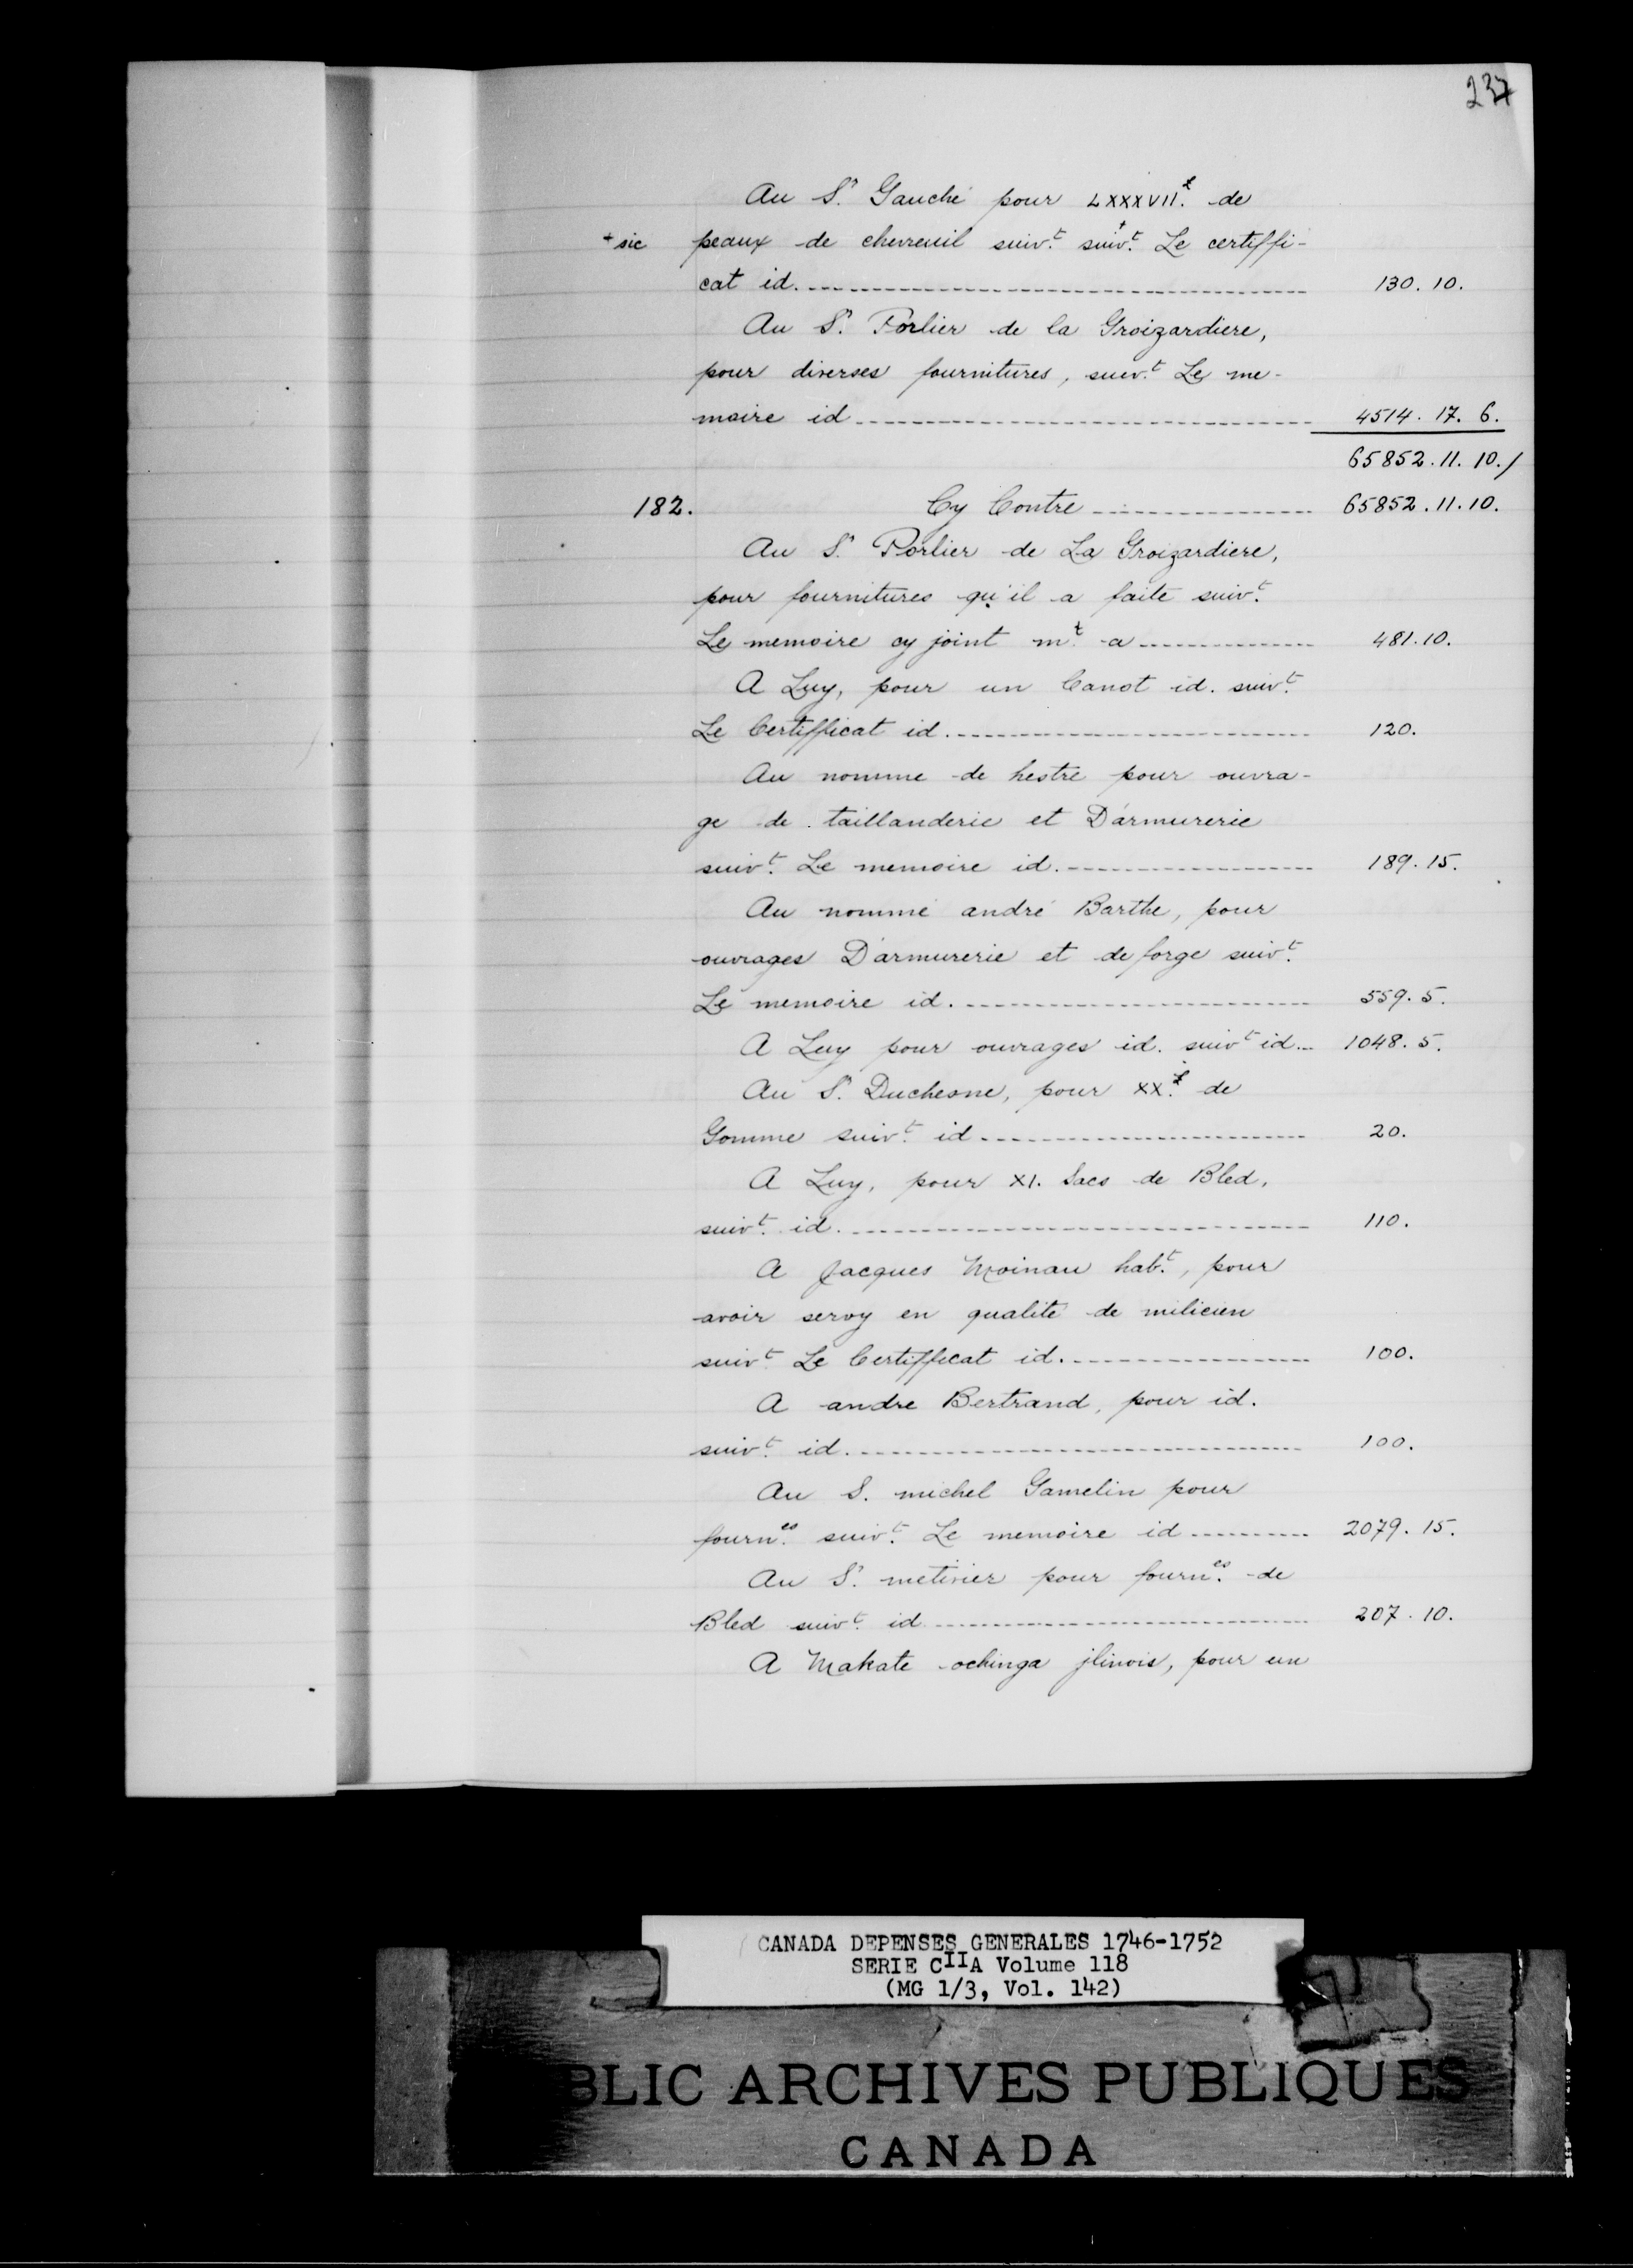 237
Au Sr. Gauché pour LXXXVII.# de
+ sic peaux de chevreuil suiv.t suiv.t+ Le certiffi-
cat id. 130. 10.
Au Sr. Porlier de la Groizardiere,
pour diverses fournitures, suiv.t Le me-
moire id 4514. 17. 6.
65852. 11. 10./
182. Cy Contre 65852. 11. 10.
Au Sr. Porlier de La Groizardiere,
pour fournitures qu'il a faite suiv.t
Le memoire cy joint m.t a 481. 10.
A Luy, pour un Canot id. suiv.t
Le Certifficat id. 120.
Au nomme de hestre pour ouvra-
ge de taillanderie et D'armurerie
suiv.t Le memoire id. 189. 15.
Au nommé andré Barthe, pour
ouvrages D'armurerie et de forge suiv.t
Le memoire id. 559. 5.
A Luy pour ouvrages id. suiv.t id 1048. 5.
Au Sr. Duchesne, pour XX.# de
Gomme suiv.t id 20.
A Luy, pour XI. Sacs de Bled,
suiv.t id. 110.
A Jacques Moinau hab.t, pour
avoir servy en qualité de milicien
suiv.t Le Certifficat id. 100.
A andre Bertrand, pour id.
suiv.t id. 100.
Au S. michel Gamelin pour
fourn.es suiv.t Le memoire id 2079. 15.
Au Sr. metivier pour fourn.es de
Bled suiv.t id 207. 10.
A Makate ochinga jlinois, pour un
CANADA DEPENSES GENERALES 1746-1752
SERIE CIIA Volume 118
(MG 1/3, Vol. 142)
BLIC ARCHIVES PUBLIQUES
CANADA